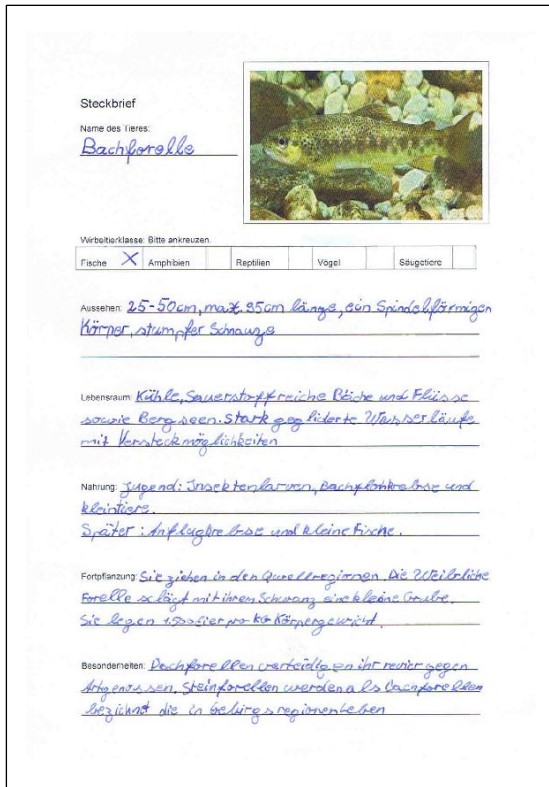 Steckbrief
Name des Tieres:
Bachforelle
Wirbeltierklasse: Bitte ankreuzen.
Fische X Amphibien Reptilien Vögel Säugetiere
Aussehen: 25-50cm, max. 95cm länge, ein Spindelförmigen
Körper, stumpfer Schnauze
Lebensraum: Kühle, Sauerstoffreiche Bäche und Flüsse
sowie Bergseen. Stark gegliderte Wasserläufe
mit Versteckmöglichkeiten
Nahrung: Jugend: Insektenlarven, Bachflohkrebse und
kleintiere.
Später: und kleine Fische.
Fortpflanzung: Sie ziehen in den Die Weibliche
Forelle schlägt mit ihrem Schwanz eine kleine Grube.
Sie legen 1.500 Eier pro KG Körpergewicht.
Besonderheiten: Bachforellen verteidigen ihr revier gegen
Artgenossen. Steinforellen werden als Bachforellen
bezichnet die in Gebirgsregionen Leben